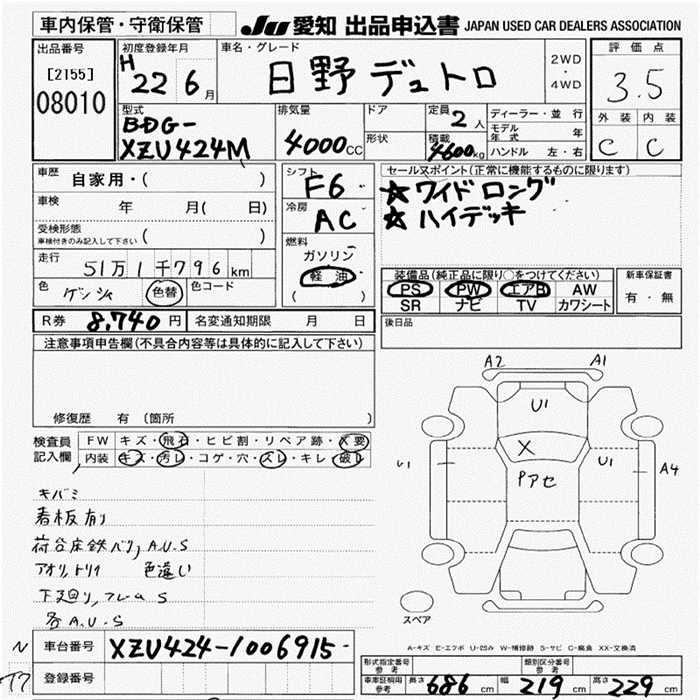 車内保管・守衛保管
JU 愛知 出品申込書 JAPAN USED CAR DEALERS ASSOCIATION
出品番号
[2155]
08010
初度登録年月
H22 6月
車名・グレード
日野デュトロ
2WD・4WD
評価点
3.5
外装 内装
C C
型式
BDG-
XZU424M
排気量
4000CC
ドア
形状
定員 2人
積載 4600kg
ディーラー・並行
モデル年式 年
ハンドル 左・右
車歴 自家用・( )
車検 年 月( 日)
受検形態
車検付きのみ記入して下さい ( )
走行 51万1千796km
色 ゲンシャ 色替 色コード
シフト F6
冷房 AC
燃料
ガソリン
軽油
( )
セールスポイント(正常に機能するものに限ります)
☆ワイドロング
☆ハイデッキ
装備品(純正品に限り○をつけてください)
PS PW エアB AW
SR ナビ TV カワシート
新車保証書
有・無
R券 8,740円 名変通知期限 月 日
後日品
注意事項申告欄(不具合内容等は具体的に記入して下さい)
修復歴 有 (箇所 )
検査員記入欄
FW キズ・飛石・ヒビ割・リペア跡・X要
内装 キズ・汚レ・コゲ・穴・スレ・キレ・破レ
キバミ
看板有り
荷台床鉄バリ,A.U.S
アオリ,トリイ 色違い
下廻り,フレームS
各A.U.S
A2 A1
U1
X
Pアセ
U1
U1
A4
スペア
A-キズ E-エクボ U-凹み W-補修跡 S-サビ C-腐食 XX-交換済
車台番号 XZU424-1006915
登録番号
形式指定番号
参考
類別区分番号
参考
車庫証明用
参考
長さ 686cm 幅 219cm 高さ 229cm